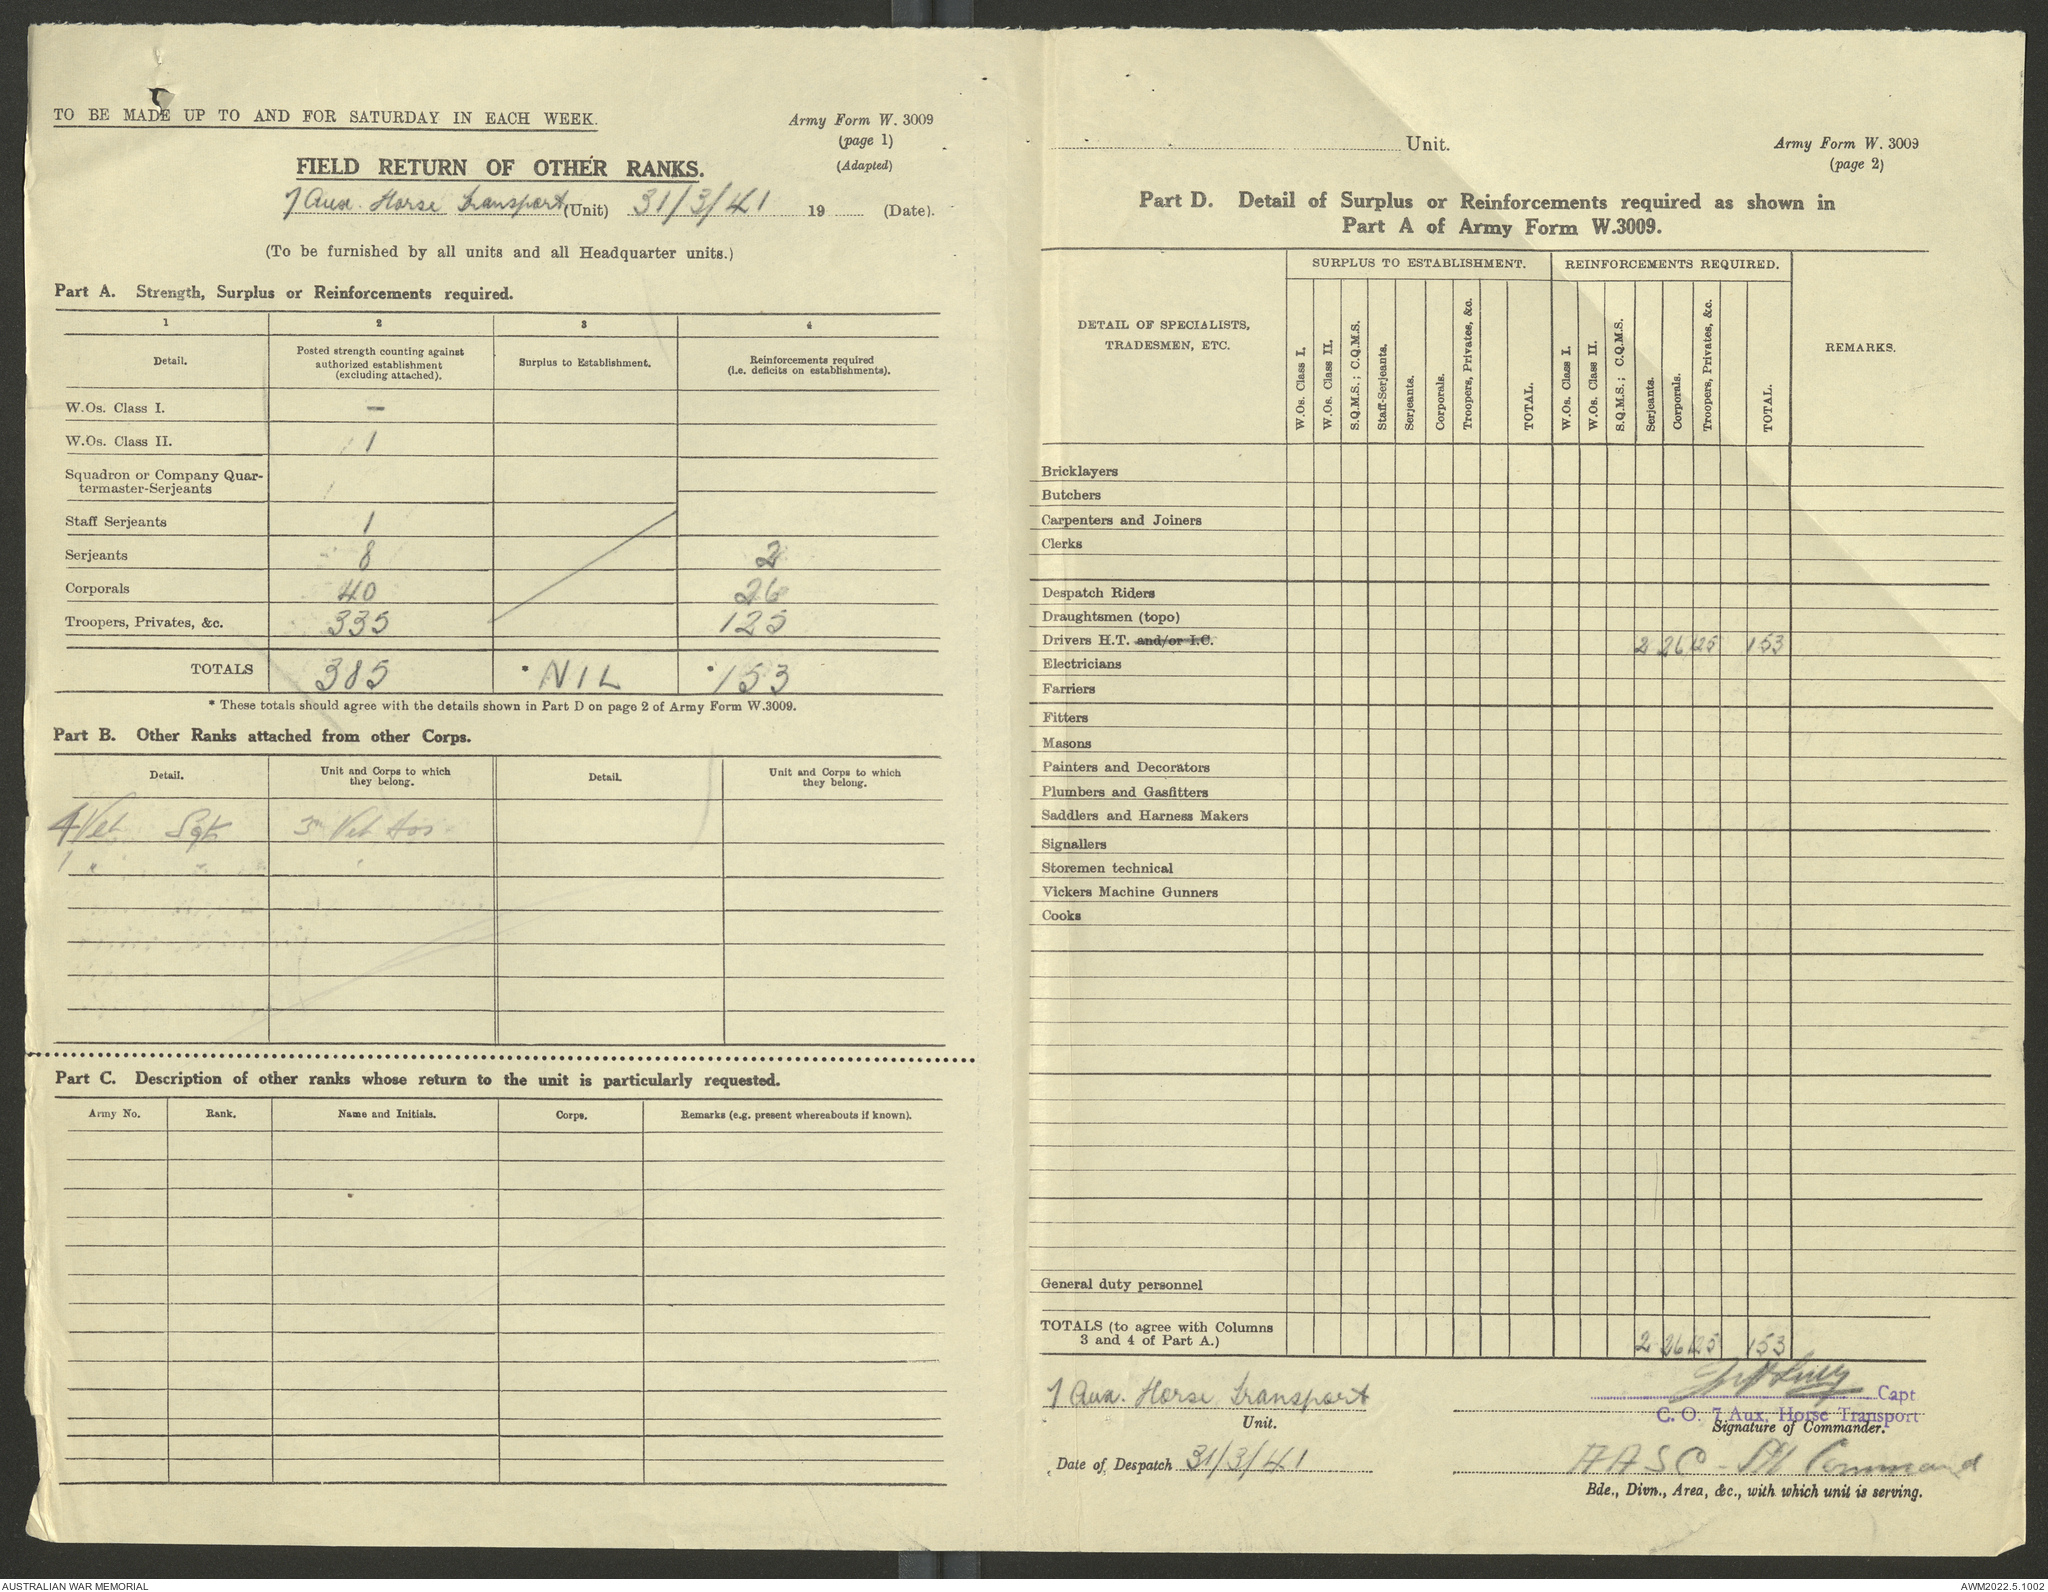 TO BE MADE UP TO AND FOR SATURDAY IN EACH WEEK.
Army Form W. 3009
(page 1)
(Adapted)
FIELD RETURN OF OTHER RANKS.
7 Aux. Horse Transport (Unit) 31/3/41 19 (Date).
(To be furnished by all units and all Headquarter units.)
Part A. Strength, Surplus or Reinforcements required.
1 2 3 4
Detail. Posted strength counting against authorized establishment (excluding attached). Surplus to Establishment. Reinforcements required (i.e. deficits on establishments).
W.Os. Class I. —
W.Os. Class II. 1
Squadron or Company Quar-
termaster-Serjeants
Staff Serjeants 1
Serjeants 8 2
Corporals 40 26
Troopers, Privates, &c. 335 125
TOTALS 385 * NIL * 153
* These totals should agree with the details shown in Part D on page 2 of Army Form W.3009.
Part B. Other Ranks attached from other Corps.
Detail. Unit and Corps to which they belong. Detail. Unit and Corps to which they belong.
4 Vet Sgts 3rd Vet Hos
1 "
Part C. Description of other ranks whose return to the unit is particularly requested.
Army No. Rank. Name and Initials. Corps. Remarks (e.g. present whereabouts if known).
Unit.
Army Form W. 3009
(page 2)
Part D. Detail of Surplus or Reinforcements required as shown in
Part A of Army Form W.3009.
SURPLUS TO ESTABLISHMENT. REINFORCEMENTS REQUIRED.
DETAIL OF SPECIALISTS,
TRADESMEN, ETC.
W.Os. Class I.
W.Os. Class II.
S.Q.M.S.; C.Q.M.S.
Staff-Serjeants.
Serjeants.
Corporals.
Troopers, Privates, &c.
TOTAL.
W.Os. Class I.
W.Os. Class II.
S.Q.M.S.; C.Q.M.S.
Serjeants.
Corporals.
Troopers, Privates, &c.
TOTAL.
REMARKS.
Bricklayers
Butchers
Carpenters and Joiners
Clerks
Despatch Riders
Draughtsmen (topo)
Drivers H.T. and/or I.C. 2 26 125 153
Electricians
Farriers
Fitters
Masons
Painters and Decorators
Plumbers and Gasfitters
Saddlers and Harness Makers
Signallers
Storemen technical
Vickers Machine Gunners
Cooks
General duty personnel
TOTALS (to agree with Columns
3 and 4 of Part A.) 2 26 125 153
7 Aux. Horse Transport
Unit.
Capt
C. O. 7 Aux. Horse Transport
Signature of Commander.
Date of Despatch 31/3/41
AASC - Command
Bde., Divn., Area, &c., with which unit is serving.
AUSTRALIAN WAR MEMORIAL
AWM2022.5.1002